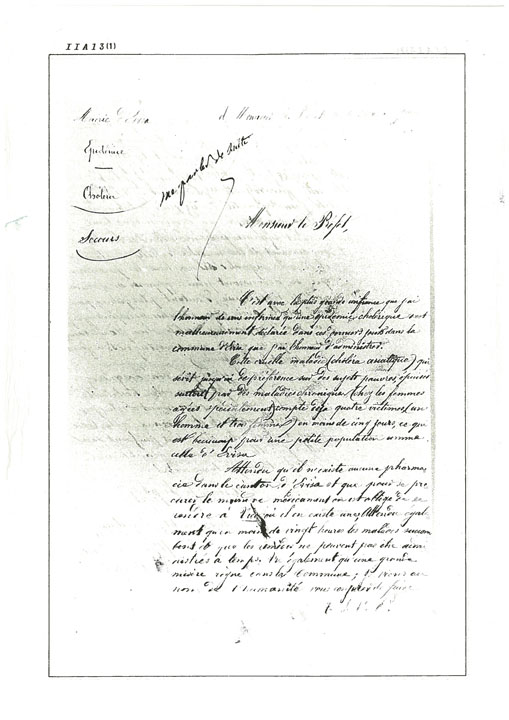 IIA13(1)
Mairie
A Monsieur
Epidémie
Choléra
Secours
me parler de suite
Monsieur le Préfet,
C'est avec la plus grande confiance que j'ai
l'honneur de vous informer qu'une épidémie cholérique s'est
malheureusement déclarée dans ces jours dans la
commune d'Evisa que j'ai l'honneur d'administrer.
Cette maladie (choléra asiatique) qui
sévit de préférence sur des sujets pauvres, épuisés
surtout par des maladies chroniques, (chez les femmes
agées spécialement) compte déjà quatre victimes (un
homme et trois femmes) en moins de cinq jours ce que
est beaucoup pour une petite population comme
celle d'Evisa.
Attendu qu'il n'existe aucune pharma
cie dans le canton d'Evisa et que pour se pro
curer le moindre médicament on est obligé de se
rendre à Vico où il en existe une; Attendu égale
ment qu'en moins de vingt heures les malades succom
bent et que les remèdes ne peuvent pas être admi
nistrés à temps; Vu également qu'une grande
misère règne dans la commune; je viens au
nom de l'humanité vous de faire